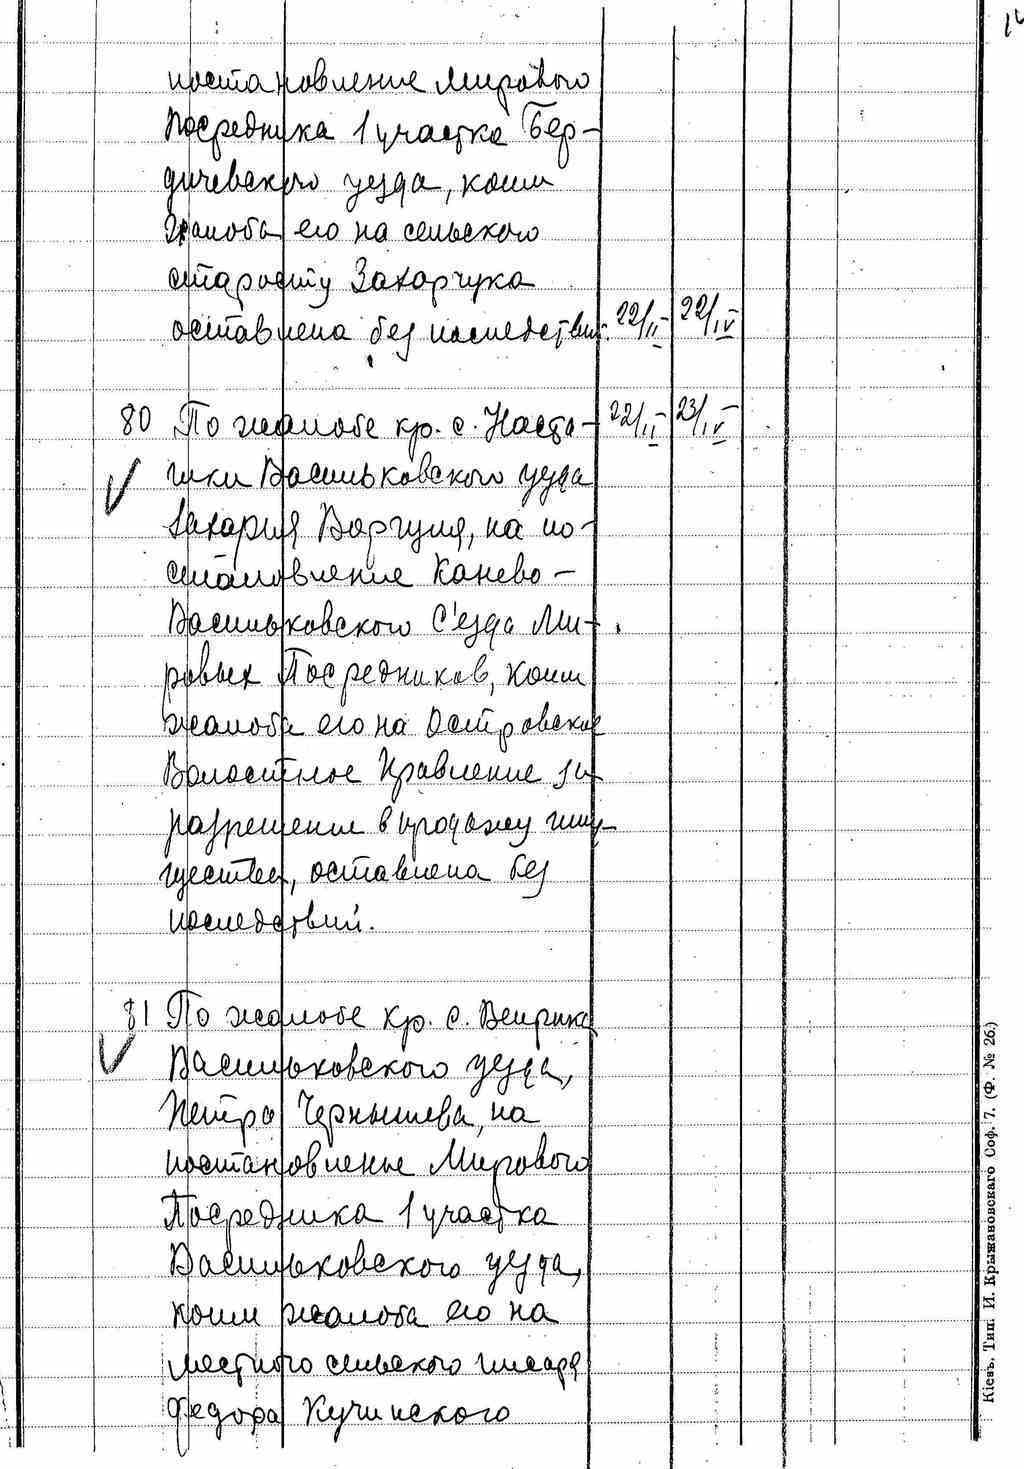 постановление Мирового
Посредника 1 участка Бер-
дичевского уезда, коим
жалоба его на сельского
старосту Захарчука
оставлена без последствий. 22/II 22/IV
80 По жалобе кр. с. Наста- 22/II 23/IV
шки Васильковского уезда
Захария Варгуля, на по-
становление Канево-
Васильковского С'езда Ми-
ровых Посредников, коим
жалоба его на Островское
Волостное Правление за
разрешение в продажу иму-
щества, оставлена без
последствий.
81 По жалобе кр. с. Веприка
Васильковского уезда,
Петра Чернышева, на
постановление Мирового
Посредника 1 участка
Васильковского уезда,
коим жалоба его на
местного сельского писаря
Федора Кучинского
Кіевъ. Тип. И. Крыжановскаго Соф. 7. (Ф. № 26.)